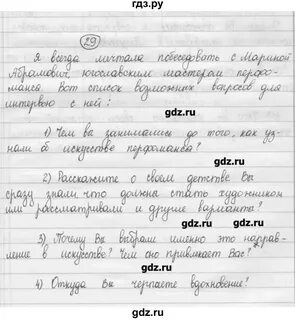 гдз.ру
29
Я всегда мечтала побеседовать с Мариной
Абрамович, югославским мастером перфо-
манса вот список возможных вопросов для
интервью с ней:
гдз.ru
1) Чем вы занимались до того, как уз-
нали об искусстве перфоманса?
гдз.ru
2) Расскажите о своем детстве Вы
сразу знали, что должна стать художником
или рассматривали и другие варианта?
гдз.ru
3) Почему Вы выбрали именно это направ-
ление в искусстве? Чем оно привлекает Вас?
гдз.ru
4) Откуда Вы черпаете вдохновение?
гдз.ru